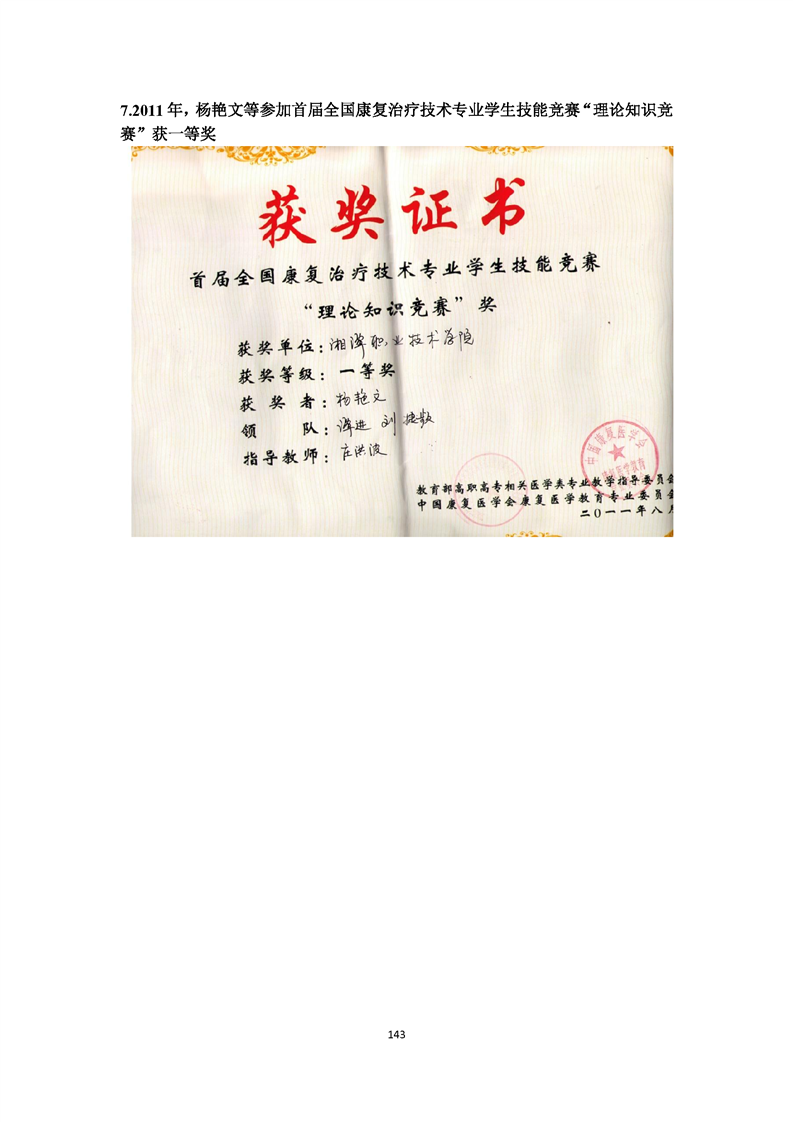 7.2011 年，杨艳文等参加首届全国康复治疗技术专业学生技能竞赛“理论知识竞
赛”获一等奖
获奖证书
首届全国康复治疗技术专业学生技能竞赛
“理论知识竞赛”奖
获奖单位：湘潭职业技术学院
获奖等级：一等奖
获奖者：杨艳文
领队：谭进 刘
指导教师：庄洪波
中国康复医学会
教育部高职高专相关医学类专业教学指导委员会
中国康复医学会康复医学教育专业委员会
二〇一一年八月
143